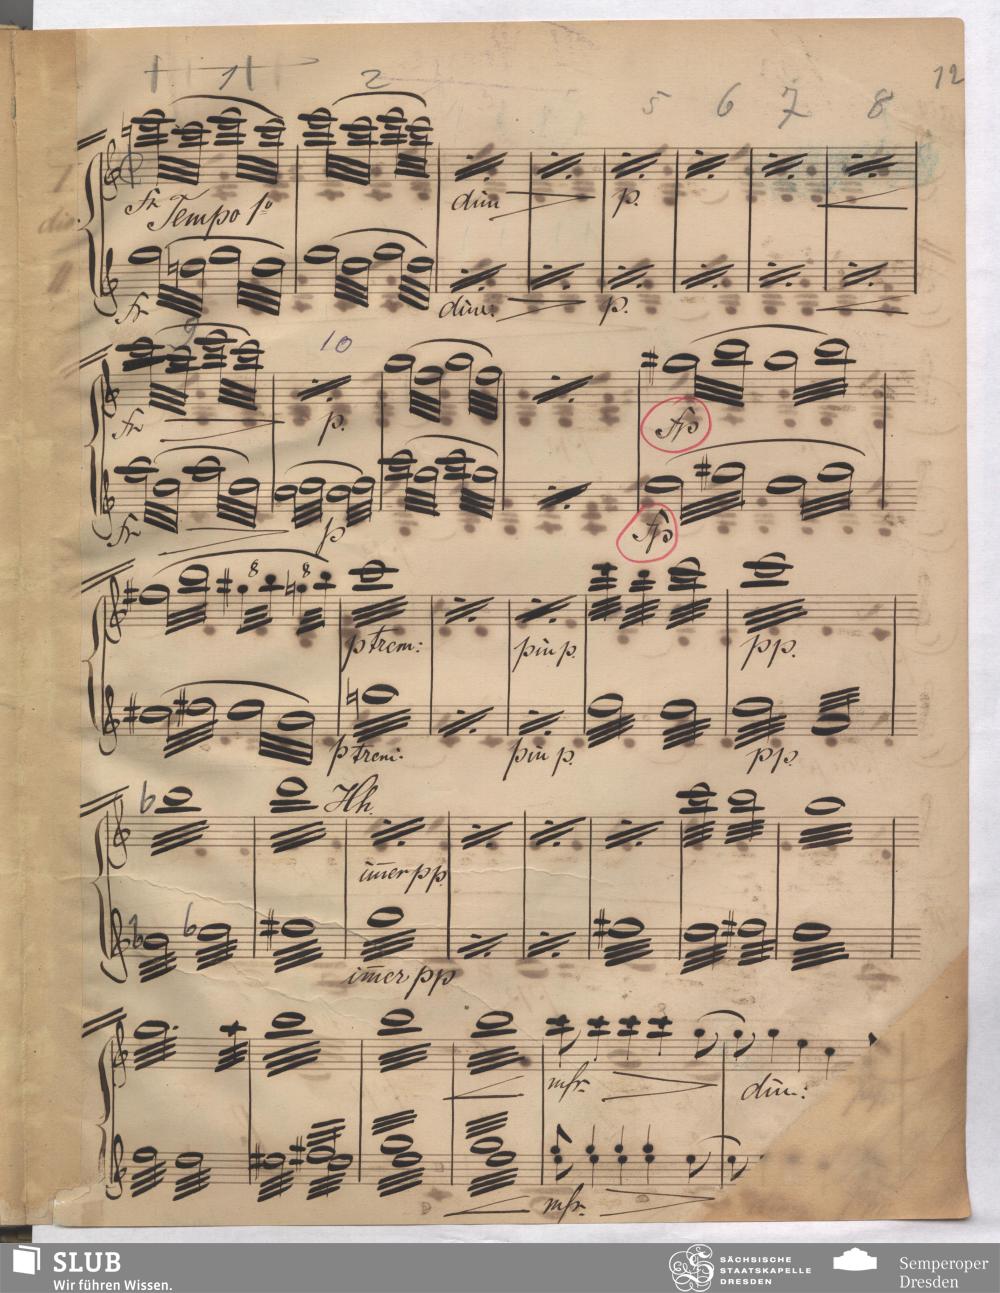 1 2 5 6 7 8 12
fz Tempo 1º dim p.
fz dim: p.
9 10
fz p. fp
fz p fp
8 8
p trem: piu p. pp.
p trem: piu p. pp.
Hh.
im̄er pp
im̄er pp
mfz dim:
mfz
SLUB
Wir führen Wissen.
SÄCHSISCHE
STAATSKAPELLE
DRESDEN
Semperoper
Dresden